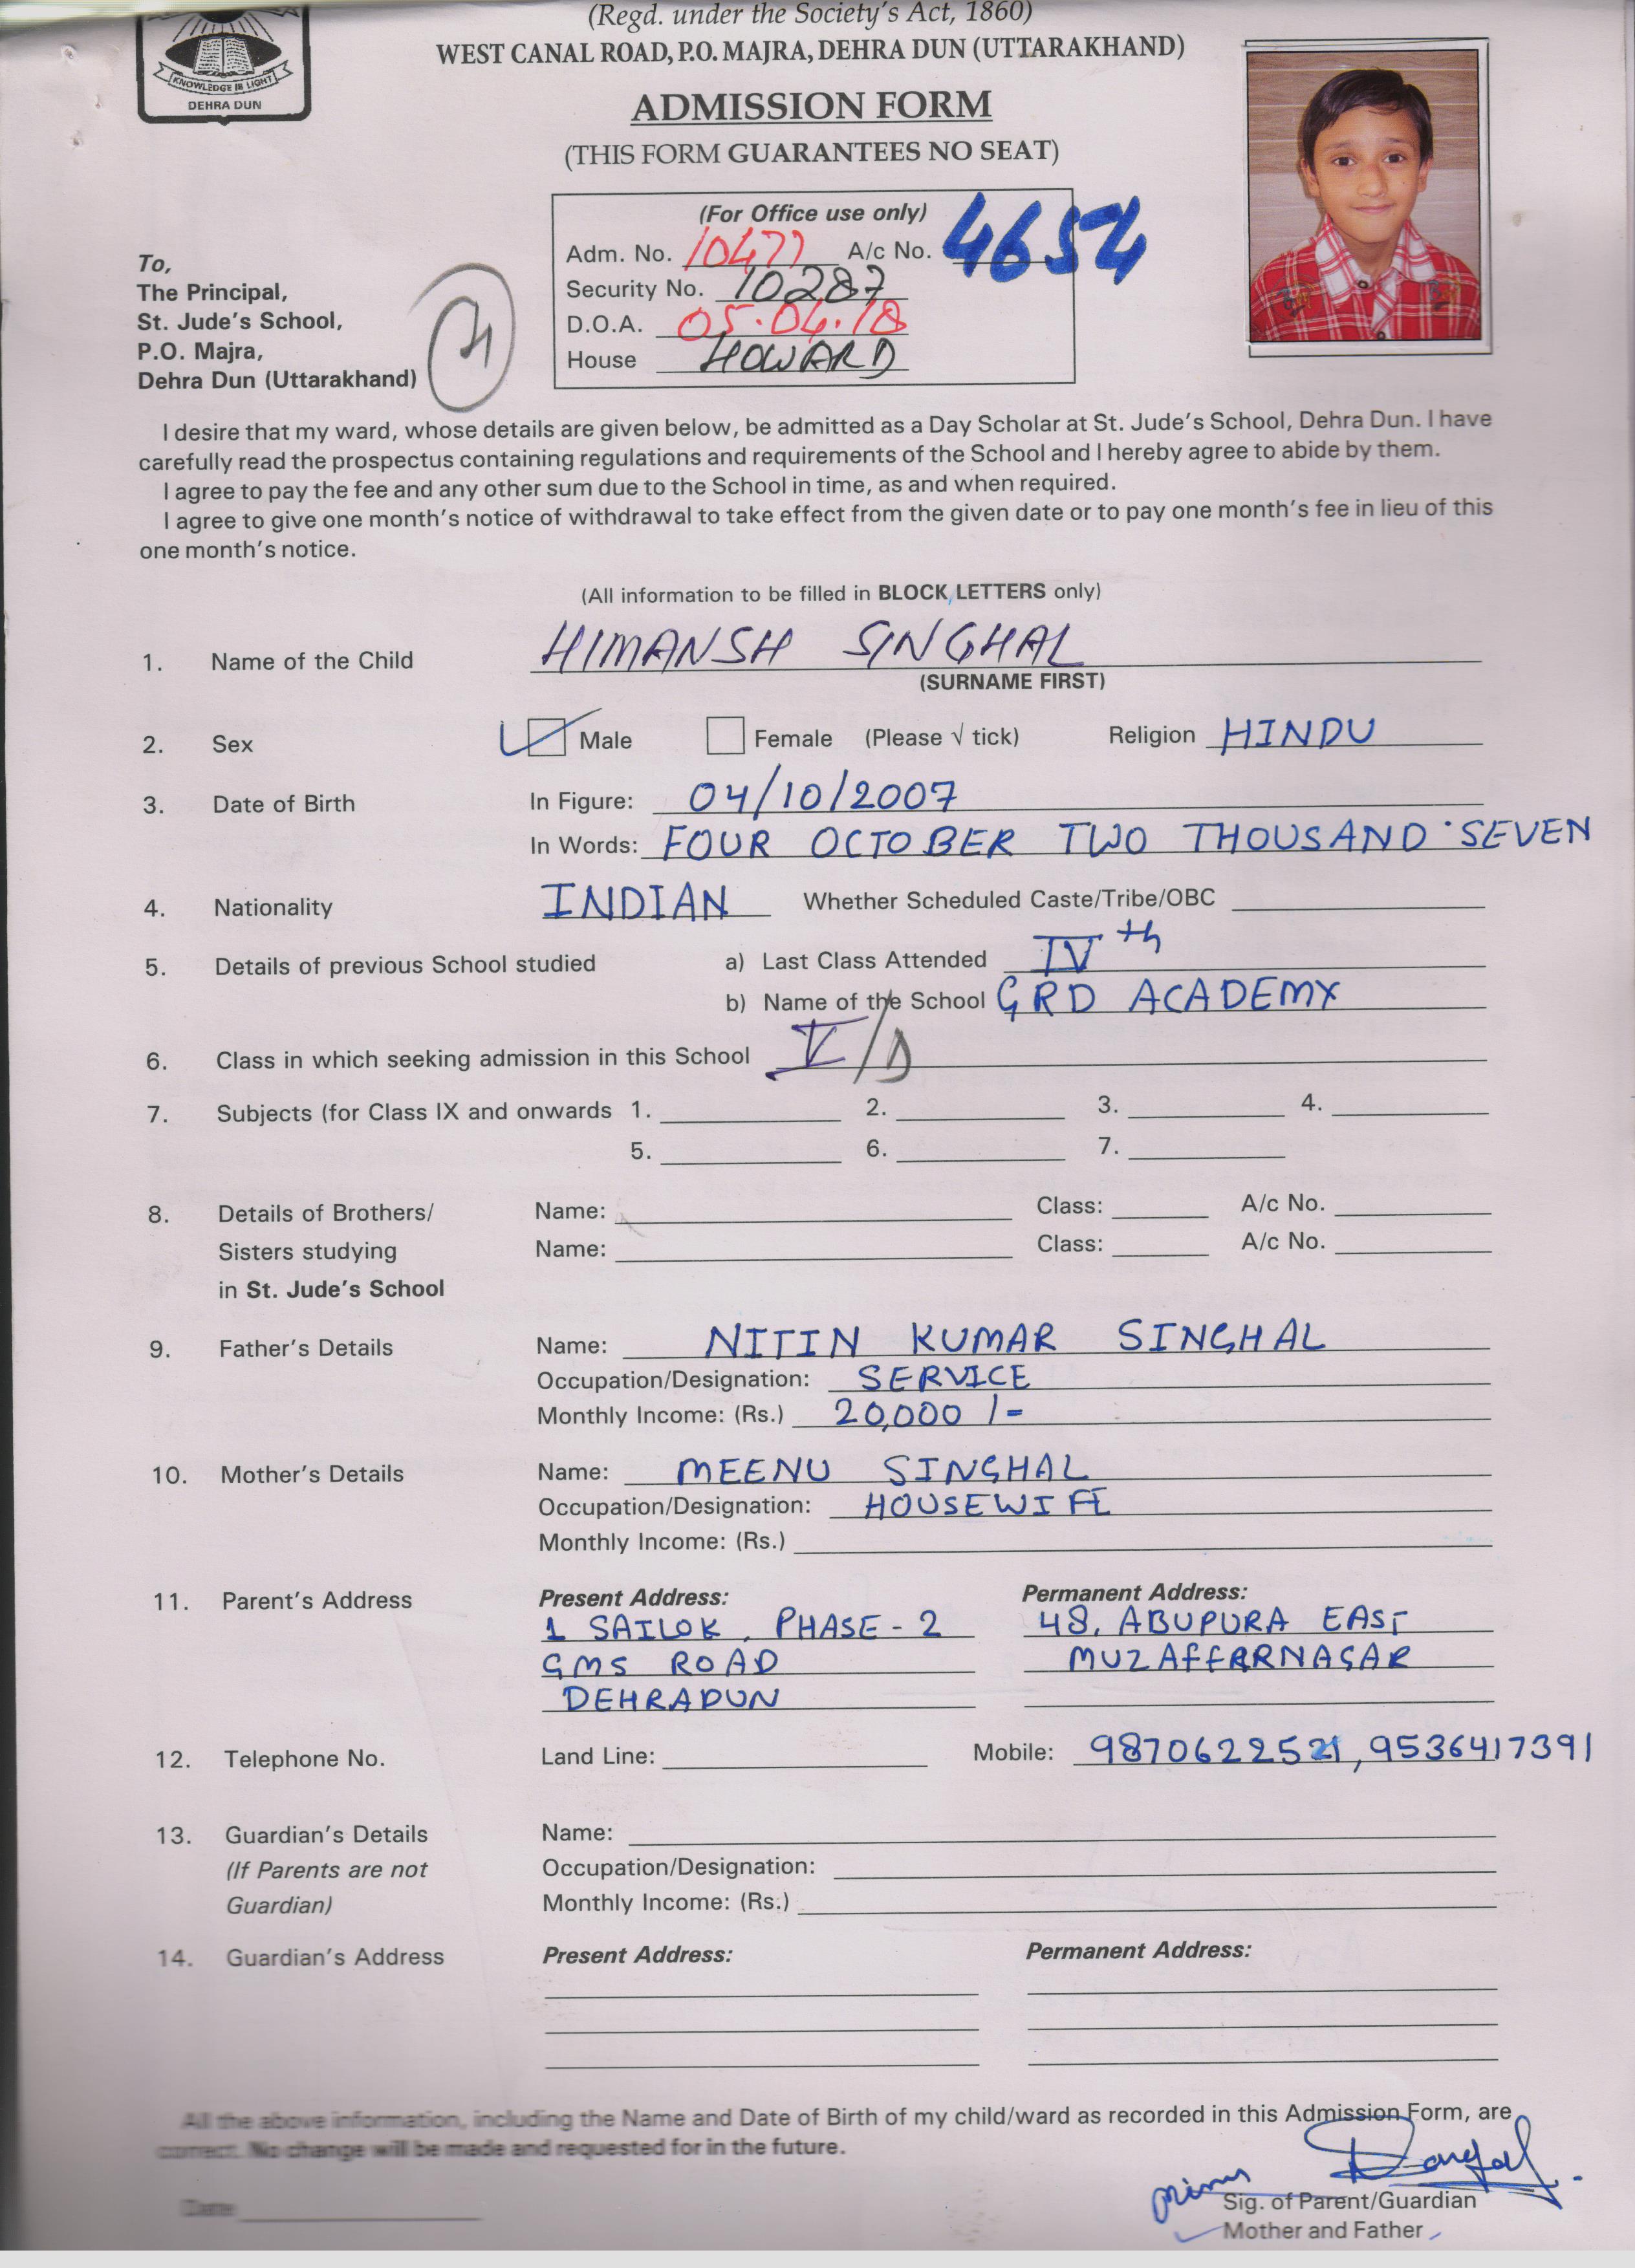 (Regd. under the Society's Act, 1860)
WEST CANAL ROAD, P.O. MAJRA, DEHRA DUN (UTTARAKHAND)
KNOWLEDGE IS LIGHT
DEHRA DUN
ADMISSION FORM
(THIS FORM GUARANTEES NO SEAT)
(For Office use only)
Adm. No. 10477 A/c No. 4654
Security No. 10287
D.O.A. 05.04.18
House HOWARD
To,
The Principal,
St. Jude's School,
P.O. Majra,
Dehra Dun (Uttarakhand)
I desire that my ward, whose details are given below, be admitted as a Day Scholar at St. Jude's School, Dehra Dun. I have
carefully read the prospectus containing regulations and requirements of the School and I hereby agree to abide by them.
I agree to pay the fee and any other sum due to the School in time, as and when required.
I agree to give one month's notice of withdrawal to take effect from the given date or to pay one month's fee in lieu of this
one month's notice.
(All information to be filled in BLOCK LETTERS only)
1. Name of the Child HIMANSH SINGHAL
(SURNAME FIRST)
2. Sex Male Female (Please √ tick) Religion HINDU
3. Date of Birth In Figure: 04/10/2007
In Words: FOUR OCTOBER TWO THOUSAND SEVEN
4. Nationality INDIAN Whether Scheduled Caste/Tribe/OBC
5. Details of previous School studied a) Last Class Attended IVth
b) Name of the School GRD ACADEMY
6. Class in which seeking admission in this School V/D
7. Subjects (for Class IX and onwards 1. 2. 3. 4.
5. 6. 7.
8. Details of Brothers/ Name: Class: A/c No.
Sisters studying Name: Class: A/c No.
in St. Jude's School
9. Father's Details Name: NITIN KUMAR SINGHAL
Occupation/Designation: SERVICE
Monthly Income: (Rs.) 20,000 /-
10. Mother's Details Name: MEENU SINGHAL
Occupation/Designation: HOUSEWIFE
Monthly Income: (Rs.)
11. Parent's Address Present Address: Permanent Address:
1 SAILOK, PHASE - 2 48, ABUPURA EAST
GMS ROAD MUZAFFARNAGAR
DEHRADUN
12. Telephone No. Land Line: Mobile: 9870622521, 9536417391
13. Guardian's Details Name:
(If Parents are not Occupation/Designation:
Guardian) Monthly Income: (Rs.)
14. Guardian's Address Present Address: Permanent Address:
All the above information, including the Name and Date of Birth of my child/ward as recorded in this Admission Form, are
correct. No change will be made and requested for in the future.
Date
Sig. of Parent/Guardian
Mother and Father